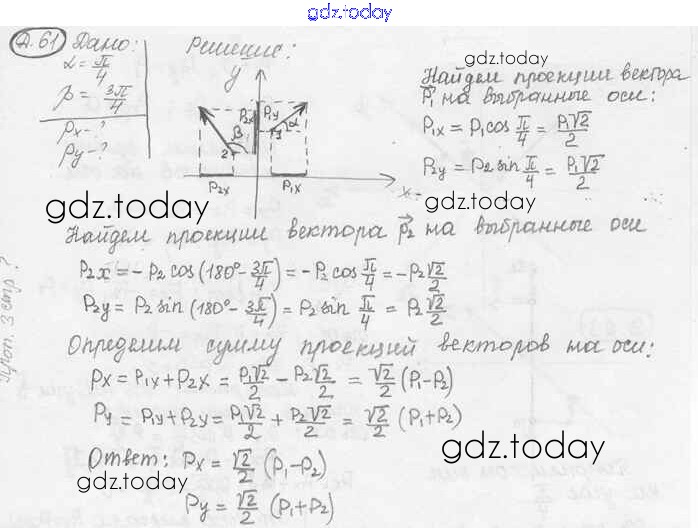 gdz.today
Д.61 Дано:
α = π/4
β = 3π/4
Px - ?
Py - ?
Решение:
y
P2y P1y
β α
2 1
P2x P1x x
gdz.today
Найдем проекции вектора
P⃗1 на выбранные оси:
P1x = P1 cos π/4 = P1√2/2
P2y = P2 sin π/4 = P1√2/2
gdz.today
gdz.today
Найдем проекции вектора P⃗2 на выбранные оси
P2x = -P2 cos (180° - 3π/4) = -P2 cos π/4 = -P2 √2/2
P2y = P2 sin (180° - 3π/4) = P2 sin π/4 = P2 √2/2
Определим сумму проекций векторов на оси:
Px = P1x + P2x = P1√2/2 - P2√2/2 = √2/2 (P1 - P2)
Py = P1y + P2y = P1√2/2 + P2√2/2 = √2/2 (P1 + P2)
Ответ: Px = √2/2 (P1 - P2)
Py = √2/2 (P1 + P2)
gdz.today
gdz.today
Проп. 3 стр?